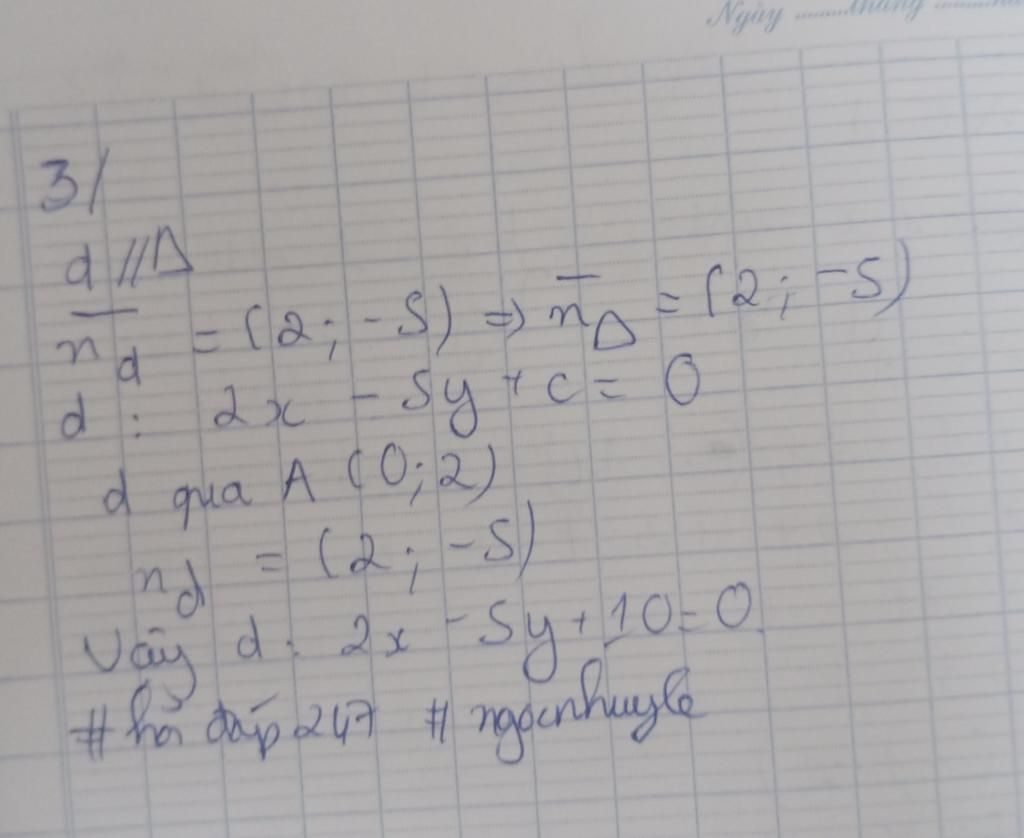 Ngày ........tháng ........
3/
d // Δ
n̅_d = (2 ; -5) => n̅_Δ = (2 ; -5)
d : 2x - 5y + c = 0
d qua A (0 ; 2)
n_d = (2 ; -5)
Vậy d : 2x - 5y + 10 = 0
#hỏi đáp 247 #ngocnhuyle